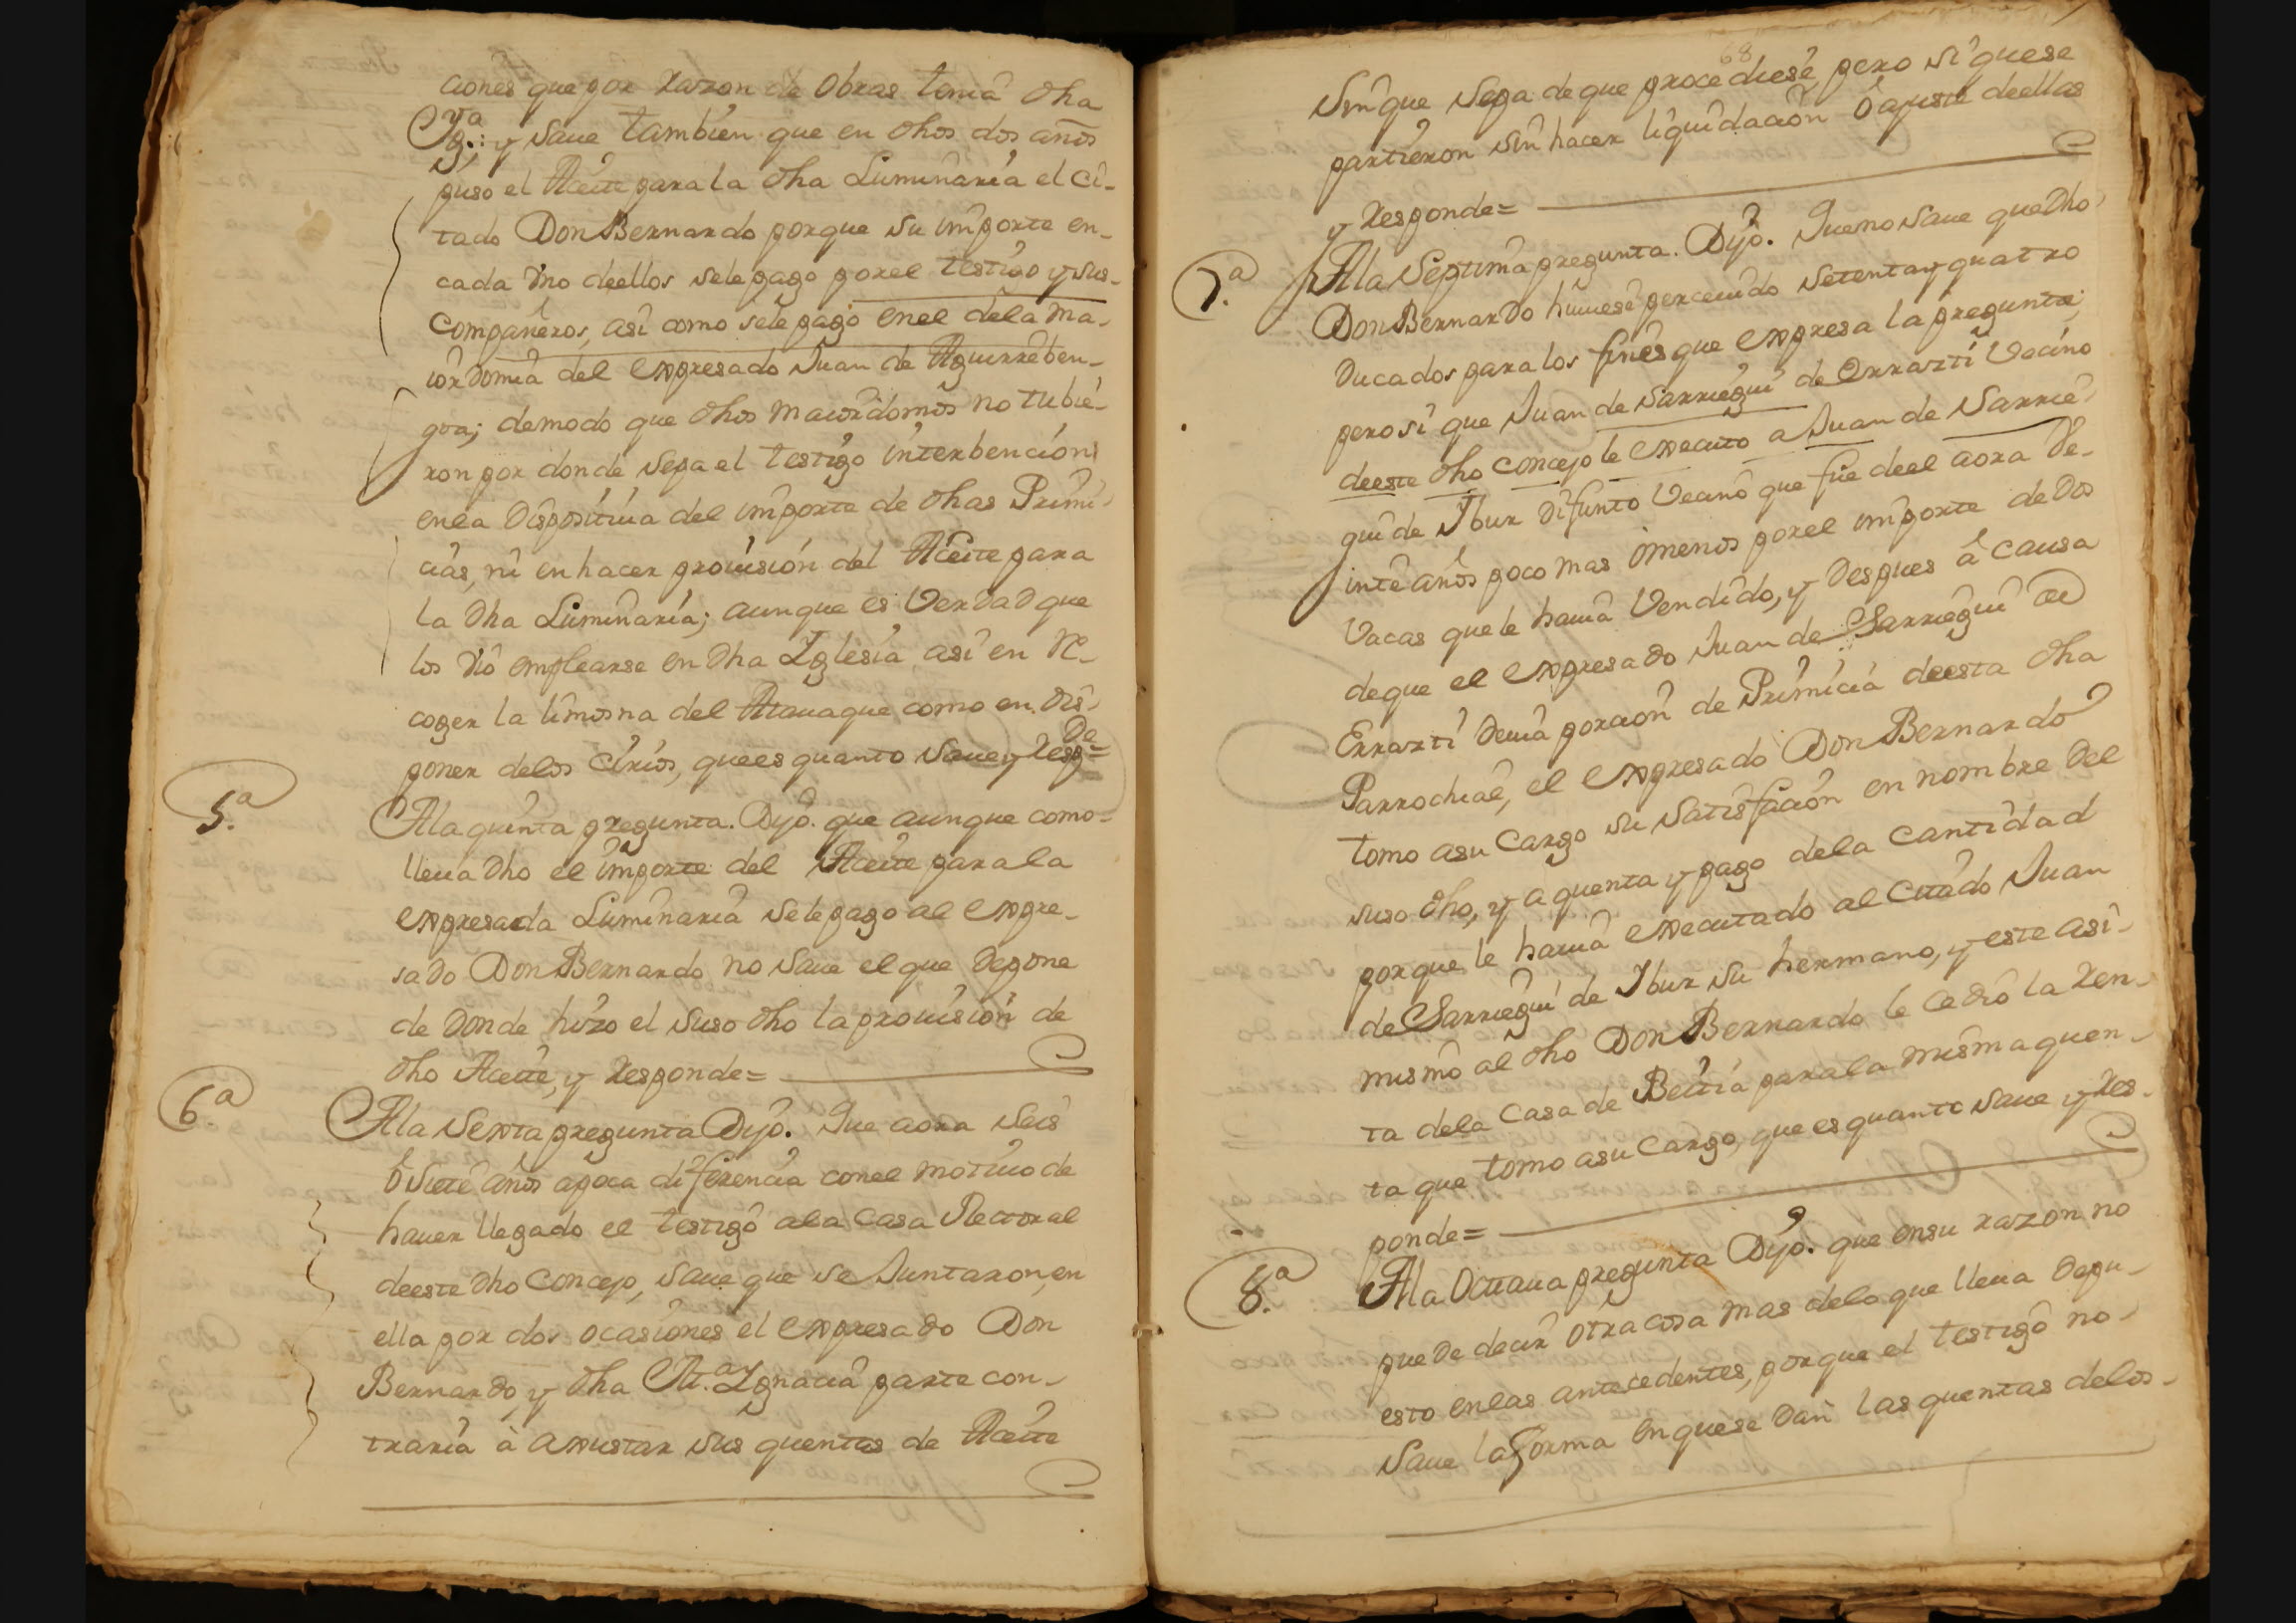 ciones que por razon de obras tenia dha
Yg.ª: y Saue tambien que en dhos dos años
puso el Aceite para la dha Luminaria el Ci-
tado Don Bernardo porque su importe en-
cada vno deellos sele pago porel testigo y sus-
compañeros, asi como sele pagó enel dela Ma-
iordomia del expresado Juan de Aguirreben-
goa; demodo que dhos maiordomos no tubie-
ron por donde sepa el testigo interbencion
enla Dispositiua del importe de dhas Primi-
cias, ni en hacer prouision del Aceite para
la Dha Luminaria; aunque es Verdad que
los vió emplearse en Dha Iglesia, asi en re-
coger la limosna del Atauaque como en Dis-
poner delos Cirios, quees quanto Saue y Resp=de
5.ª
A la quinta pregunta. Dijo. que aunque como-
lleua Dho el importe del Aceite para la
expresada Luminaria sele pago al expre-
sado Don Bernardo no saue el que Depone
de Donde hizo el suso dho la prouision de
dho Aceite, y Responde=
6.ª
A la Sexta pregunta Dijo. Que aora Seis
ó Siete años apoca diferencia conel motiuo de
hauer llegado el testigo ala Casa Rectoral
deeste Dho Concejo, Saue que se Juntaron, en
ella por dos ocasiones el expresado Don
Bernardo, y dha M.ª Ignacia parte con-
traria à axustar sus quentas de Aceite
68
Sin que Sepa de que procediese, pero si quese
partieron sin hacer liquidacion ó ajuste deellas
y Responde=
7.ª
A la Septima pregunta. Dijo. Queno Saue que Dho
Don Bernardo huuiese perceuido setenta y quatro
Ducados para los fines que expresa la pregunta;
pero si que Juan de Sarriegui de Errazti Vecino
deeste dho Concejo le executo a Juan de Sarrie-
gui de Ibur Difunto Vecino que fue deel aora Ve-
inte años poco mas ó menos porel importe de Dos
Vacas que le hauia Vendido, y Despues â causa
deque el expresado Juan de Sarriegui de
Errazti Deuia porcion de Primicia deesta dha
Parrochial, el expresado Don Bernardo
tomo asu Cargo su satisfacion en nombre Del
suso dho, y a quenta y pago dela Cantidad
porque le hauia executado al Citado Juan
de Sarriegui de Ibur su hermano, y este asi-
mismo al dho Don Bernardo le Cedió la Ren-
ta dela Casa de Beitia para la misma quen-
ta que tomo asu Cargo, que es quanto saue y Res-
ponde=
8.ª
A la Octaua pregunta Dijo. que en su razon no
puede decir otra cosa mas delo que lleua Depu-
esto enlas antecedentes, porque el testigo no-
Saue la forma en quese Dan las quentas delos-